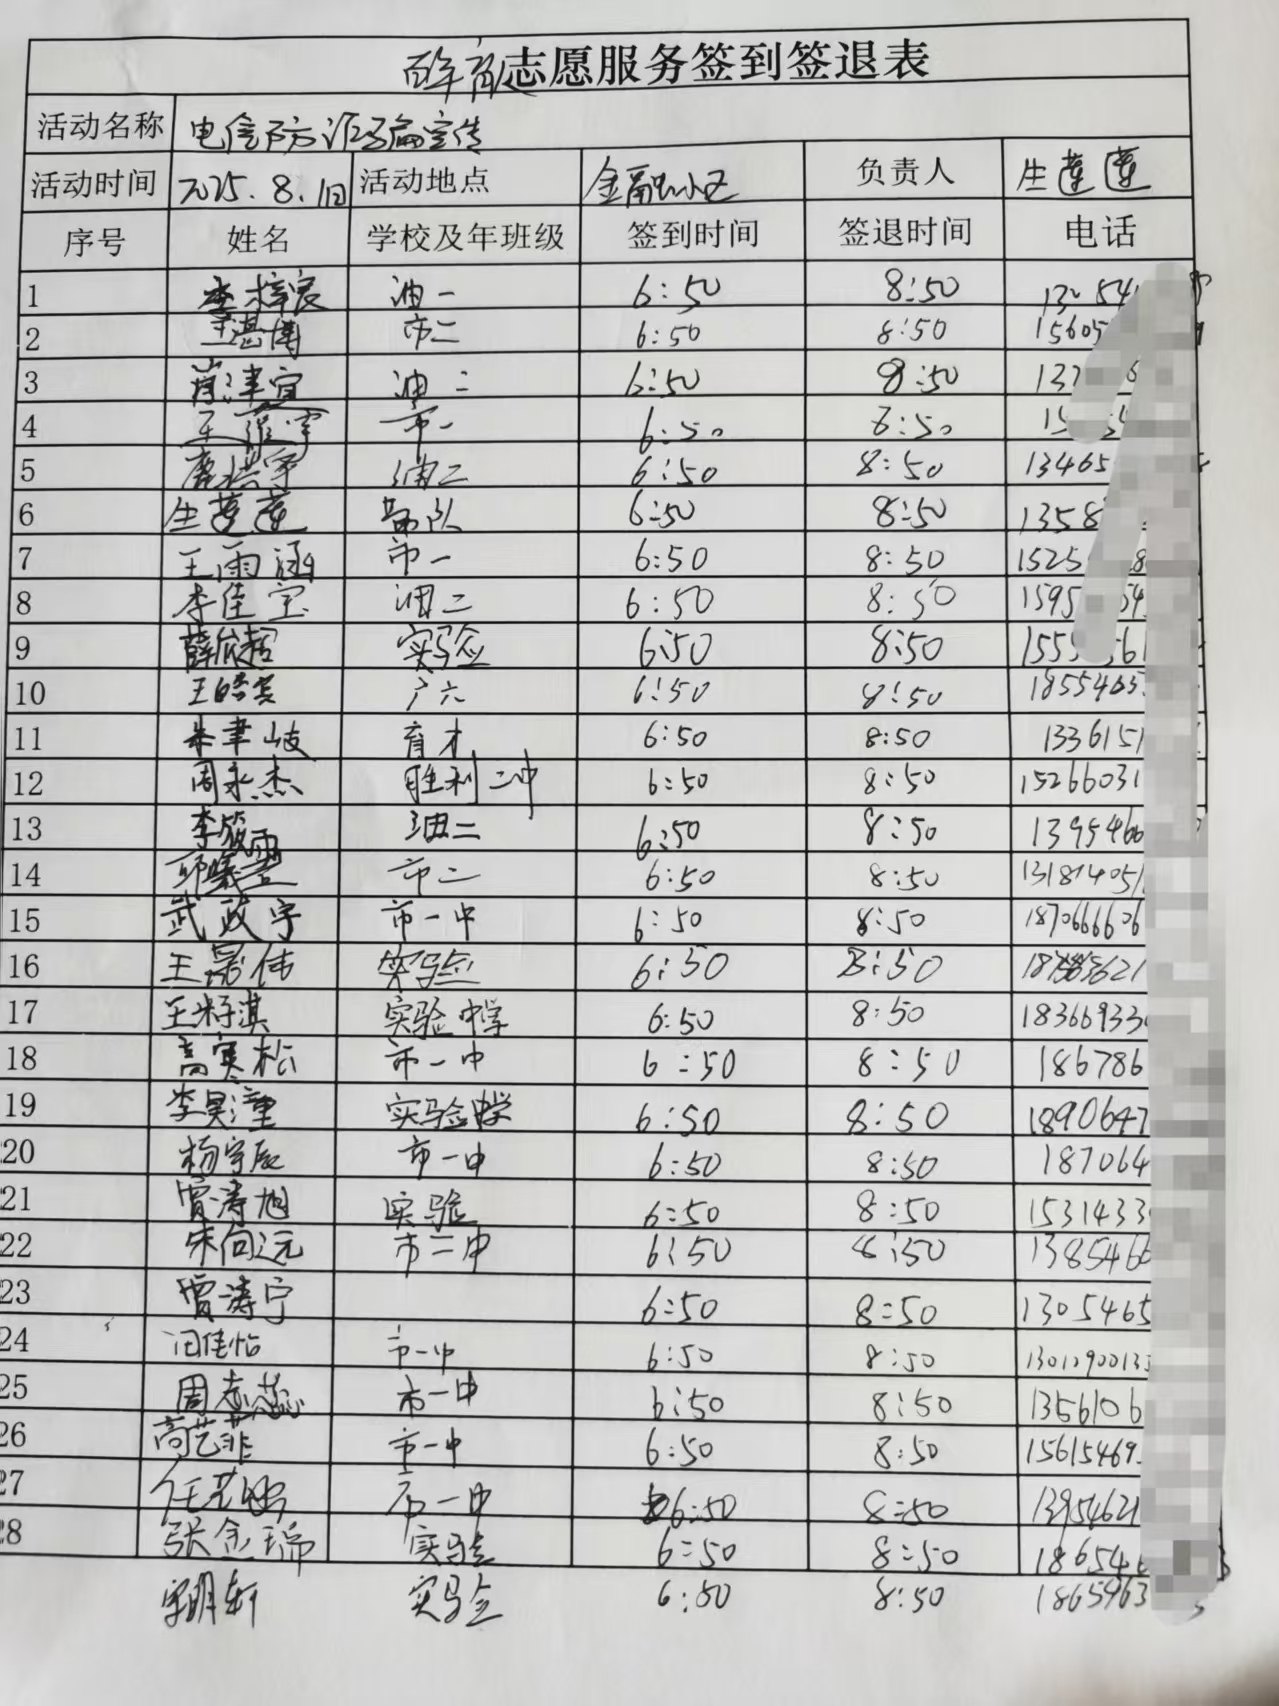 志愿服务签到签退表
活动名称 电信防诈骗宣传
活动时间 2025.8.1日 活动地点 金融小区 负责人 生莲莲
序号 姓名 学校及年班级 签到时间 签退时间 电话
1 李梓宸 油一 6:50 8:50
2 王湛博 市二 6:50 8:50 15605
3 油二 6:50 8:50
4 市一 6:50 8:50
5 油二 6:50 8:50 13465
6 生莲莲 部队 6:50 8:50 1358
7 王雨涵 市一 6:50 8:50 1525
8 李佳宝 油二 6:50 8:50 1595
9 薛欣超 实验 6:50 8:50 1555
10 王皓 广六 6:50 8:50 18554653
11 朱聿岐 育才 6:50 8:50 1336151
12 周永杰 胜利二中 6:50 8:50 15266031
13 李筱雨 油二 6:50 8:50 1395466
14 市二 6:50 8:50 131814051
15 武政宇 市一中 6:50 8:50 1870666606
16 王晨伟 实验 6:50 8:50
17 王籽淇 实验中学 6:50 8:50 18366933
18 高寒松 市一中 6:50 8:50 186786
19 李昊潼 实验中学 6:50 8:50 1890647
20 杨宇辰 市一中 6:50 8:50 187064
21 贾涛旭 实验 6:50 8:50 1531433
22 宋向元 市二中 6:50 8:50 1385466
23 贾涛宁 6:50 8:50 1305465
24 闫佳怡 市一中 6:50 8:50
25 周志蕊 市一中 6:50 8:50 1356106
26 高艺菲 市一中 6:50 8:50 15615469
27 市一中 6:50 8:50 13954621
28 张金瑞 实验 6:50 8:50 18654
宋明轩 实验 6:50 8:50 1865963